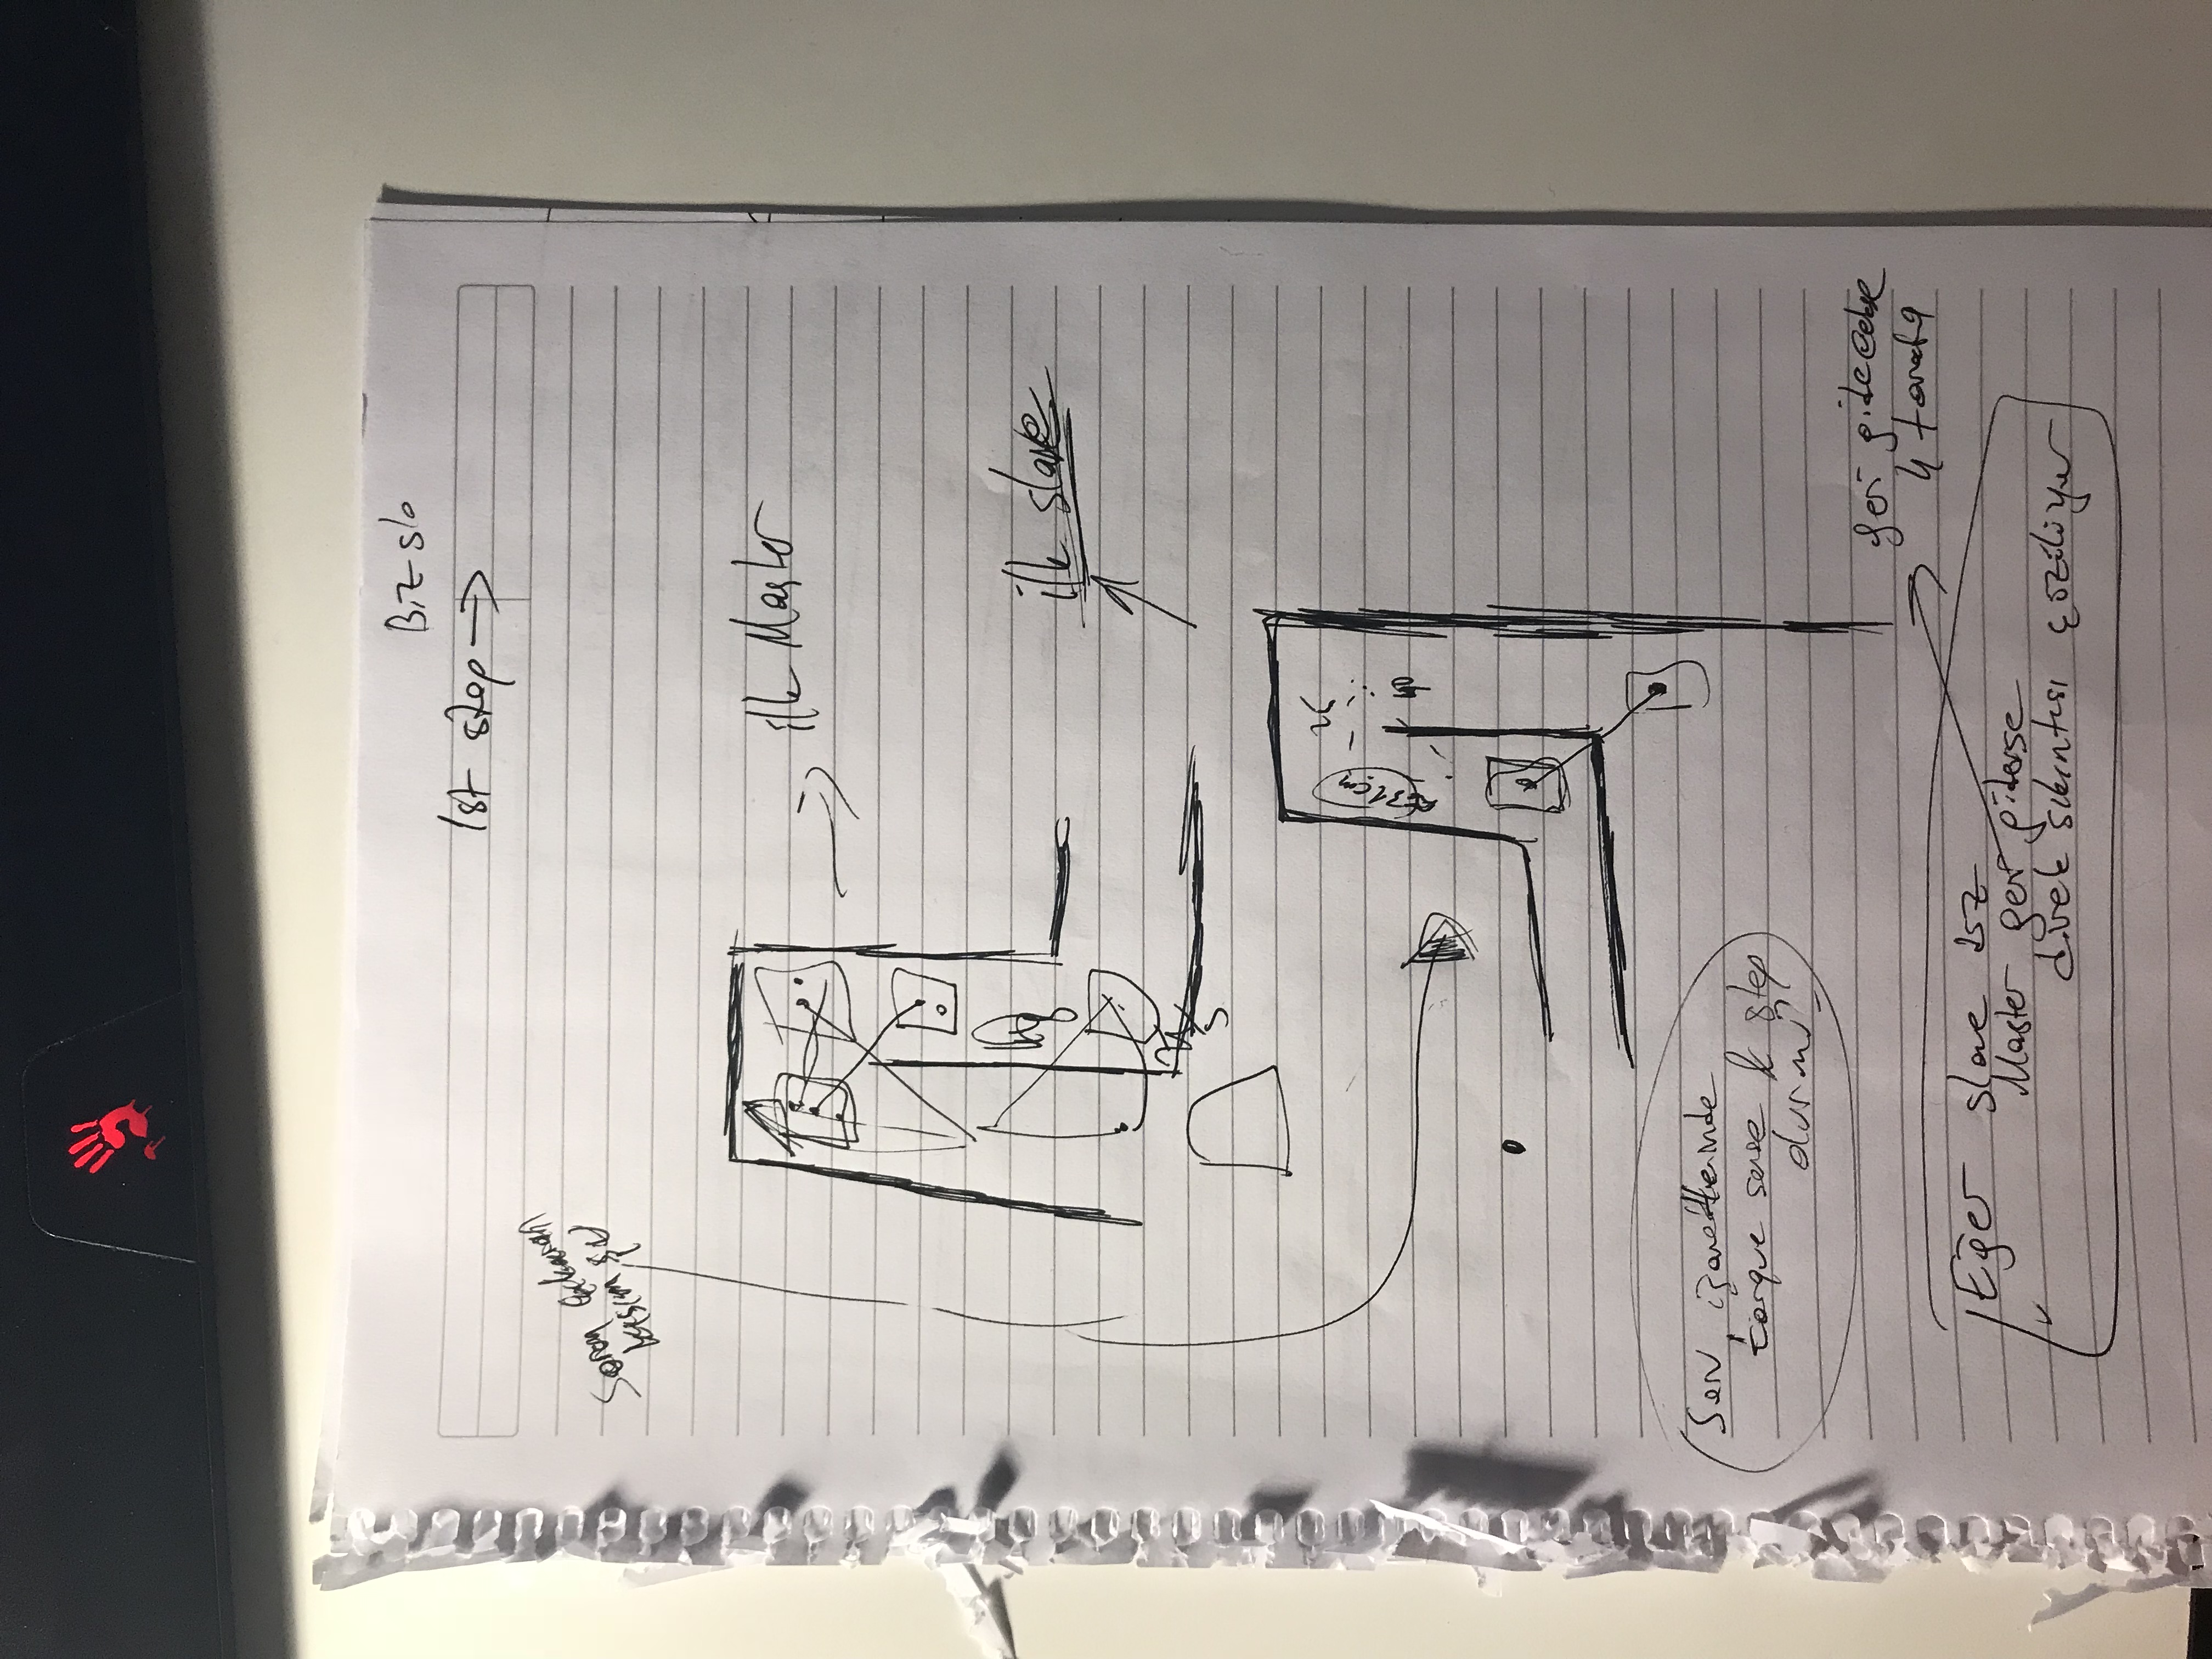 1st step →
Sorun çıkaran
kısım şu
ilk Master
ilk slave
S
31cm
25
40
Sen, işaretlerinde
torque sense & step
dursun?
geri gidecekse
4 tarafa
Eğer slave
Master geri giderse
direk sıkıntısı çözülüyor